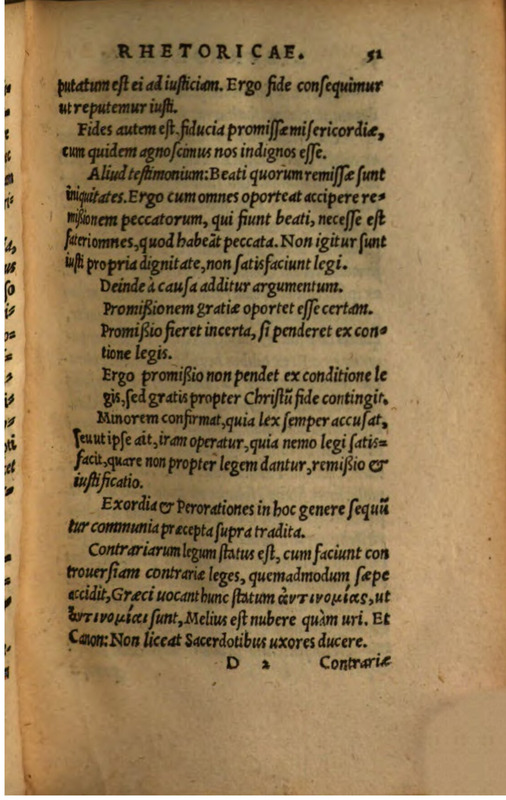 RHETORICAE. 52
putatum est ei ad iusticiam. Ergo fide consequimur
ut reputemur iusti.
Fides autem est, fiducia promissæ misericordiæ,
cum quidem agnoscimus nos indignos esse.
Aliud testimonium: Beati quorum remissæ sunt
iniquitates. Ergo cum omnes oporteat accipere re-
mißionem peccatorum, qui fiunt beati, necesse est
fateri omnes, quod habeāt peccata. Non igitur sunt
iusti propria dignitate, non satisfaciunt legi.
Deinde à causa additur argumentum.
Promißionem gratiæ oportet esse certam.
Promißio fieret incerta, si penderet ex con-
tione legis.
Ergo promißio non pendet ex conditione le
gis, sed gratis propter Christū fide contingit.
Minorem confirmat, quia lex semper accusat,
seu ut ipse ait, iram operatur, quia nemo legi satis=
facit, quare non propter legem dantur, remißio &
iustificatio.
Exordia & Perorationes in hoc genere sequū
tur communia præcepta supra tradita.
Contrariarum legum status est, cum faciunt con
trouersiam contrariæ leges, quemadmodum sæpe
accidit, Græci uocant hunc statum ἀντινομίας, ut
ἀντινομίαι sunt, Melius est nubere quàm uri. Et
Canon: Non liceat Sacerdotibus uxores ducere.
D 2 Contrariæ